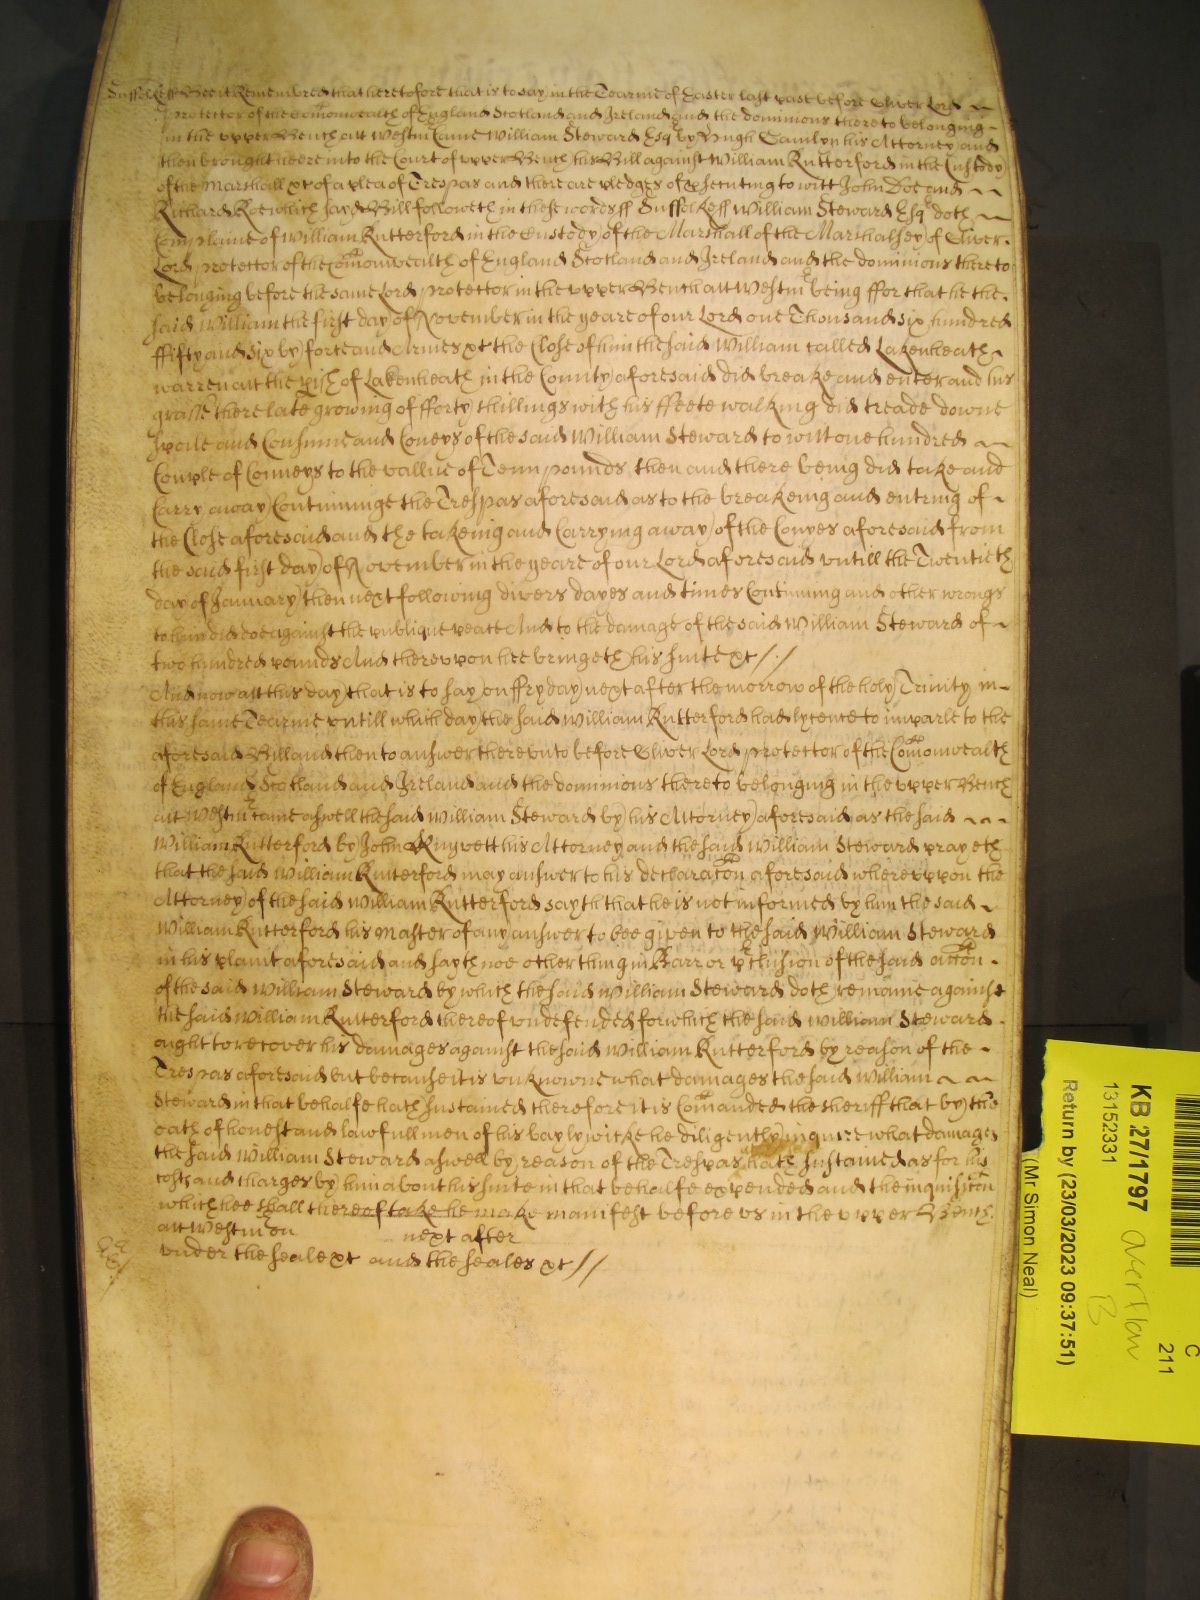 Suffolke ff Bee it Remembred that heretofore that is to say in the Tearme of Easter last past before Oliver Lord
Protector of the Comonwealth of England Scotland and Ireland and the dominions there to belonging
in the upper Bench att Westm Came William Steward Esq by Hugh his Attorney and
then brought heere into the Court of upper Bench his Bill against William Rutterford in the Custody
of the Marshall &c of a plea of Trespas and there are pledges of prosecuting to witt John Doe and
Richard Roe which sayd Bill followeth in these words ff Suffolke ff William Steward Esq doth
Complaine of William Rutterford in the Custody of the Marshall of the Marshalsey of Oliver
Lord protector of the Comonwealth of England Scotland and Ireland and the dominions there to
belonging before the same Lord protector in the upper Bench att Westm being ffor that he the
said William the first day of November in the yeare of our Lord one Thousand six hundred
ffifty and six by force and Armes &c the Close of him the said William called Lakenheath
warren att the pish of Lakenheath in the County aforesaid did breake and enter and his
grasse there late growing of fforty shillings with his ffeete walking did treade downe
spoile and Consume and Coneys of the said William Steward to witt one hundred
Couple of Conneys to the vallue of Tenn pounds then and there being did take and
Carry away Continuinge the Trespas aforesaid as to the breakeing and entring of
the Close aforesaid and the takeing and Carrying away of the Conyes aforesaid from
the said first day of November in the yeare of our Lord aforesaid untill the Twentieth
day of January then next following divers dayes and times Continuing and other wrongs
to him did doe against the publique peace And to the damage of the said William Steward of
two hundred pounds And thereupon hee bringeth his suite &c //
And now att this day that is to say on ffryday next after the morrow of the holy Trinity in
this same Tearme untill which day the said William Rutterford had lycence to imparle to the
aforesaid Bill and then to answer thereunto before Oliver Lord protector of the Comonwealth
of England Scotland and Ireland and the dominions thereto belonging in the upper Bench
att Westm came aswell the said William Steward by his Attorney aforesaid as the said
William Rutterford by John his Attorney and the said William Steward prayeth
that the said William Rutterford may answer to his declaracon aforesaid whereuppon the
Attorney of the said William Rutterford sayth that he is not informed by him the said
William Rutterford his master of any answer to bee given to the said William Steward
in his plaint aforesaid and sayth noe other thing in Barr or pclusion of the said accon
of the said William Steward by which the said William Steward doth remaine against
the said William Rutterford thereof undefended for which the said William Steward
ought to recover his damages against the said William Rutterford by reason of the
Trespas aforesaid but because it is unknowne what damages the said William
Steward in that behalfe hath sustained therefore it is Comanded the sheriff that by the
oath of honest and lawfull men of his baylywicke he diligently inquire what damages
the said William Steward aswell by reason of the Trespas hath sustained as for his
costs and charges by him about his suite in that behalfe expended and the inquisicon
which hee shall thereof take he make manifest before us in the upper Bench
att Westm on next after
under the seale &c and the seales &c //
KB 27/1797
13152331
Return by (23/03/2023 09:37:51)
(Mr Simon Neal)
C
211
overflow
B